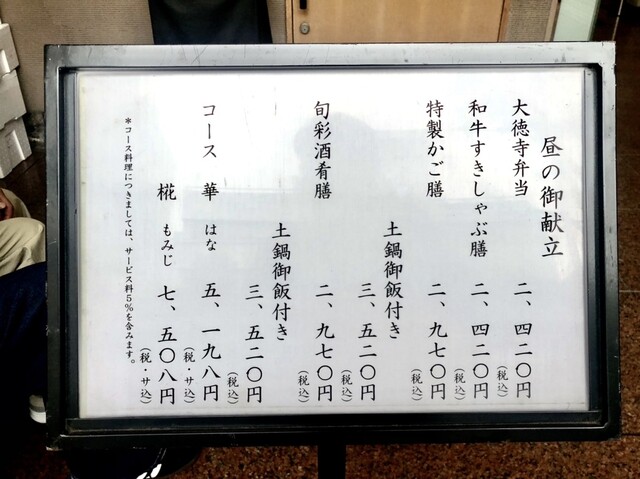 昼の御献立
大徳寺弁当 二、四二〇円(税込)
和牛すきしゃぶ膳 二、四二〇円(税込)
特製かご膳 二、九七〇円(税込)
土鍋御飯付き 三、五二〇円(税込)
旬彩酒肴膳 二、九七〇円(税込)
土鍋御飯付き 三、五二〇円(税込)
コース 華 はな 五、一九八円(税・サ込)
椛 もみじ 七、五〇八円(税・サ込)
*コース料理につきましては、サービス料5%を含みます。